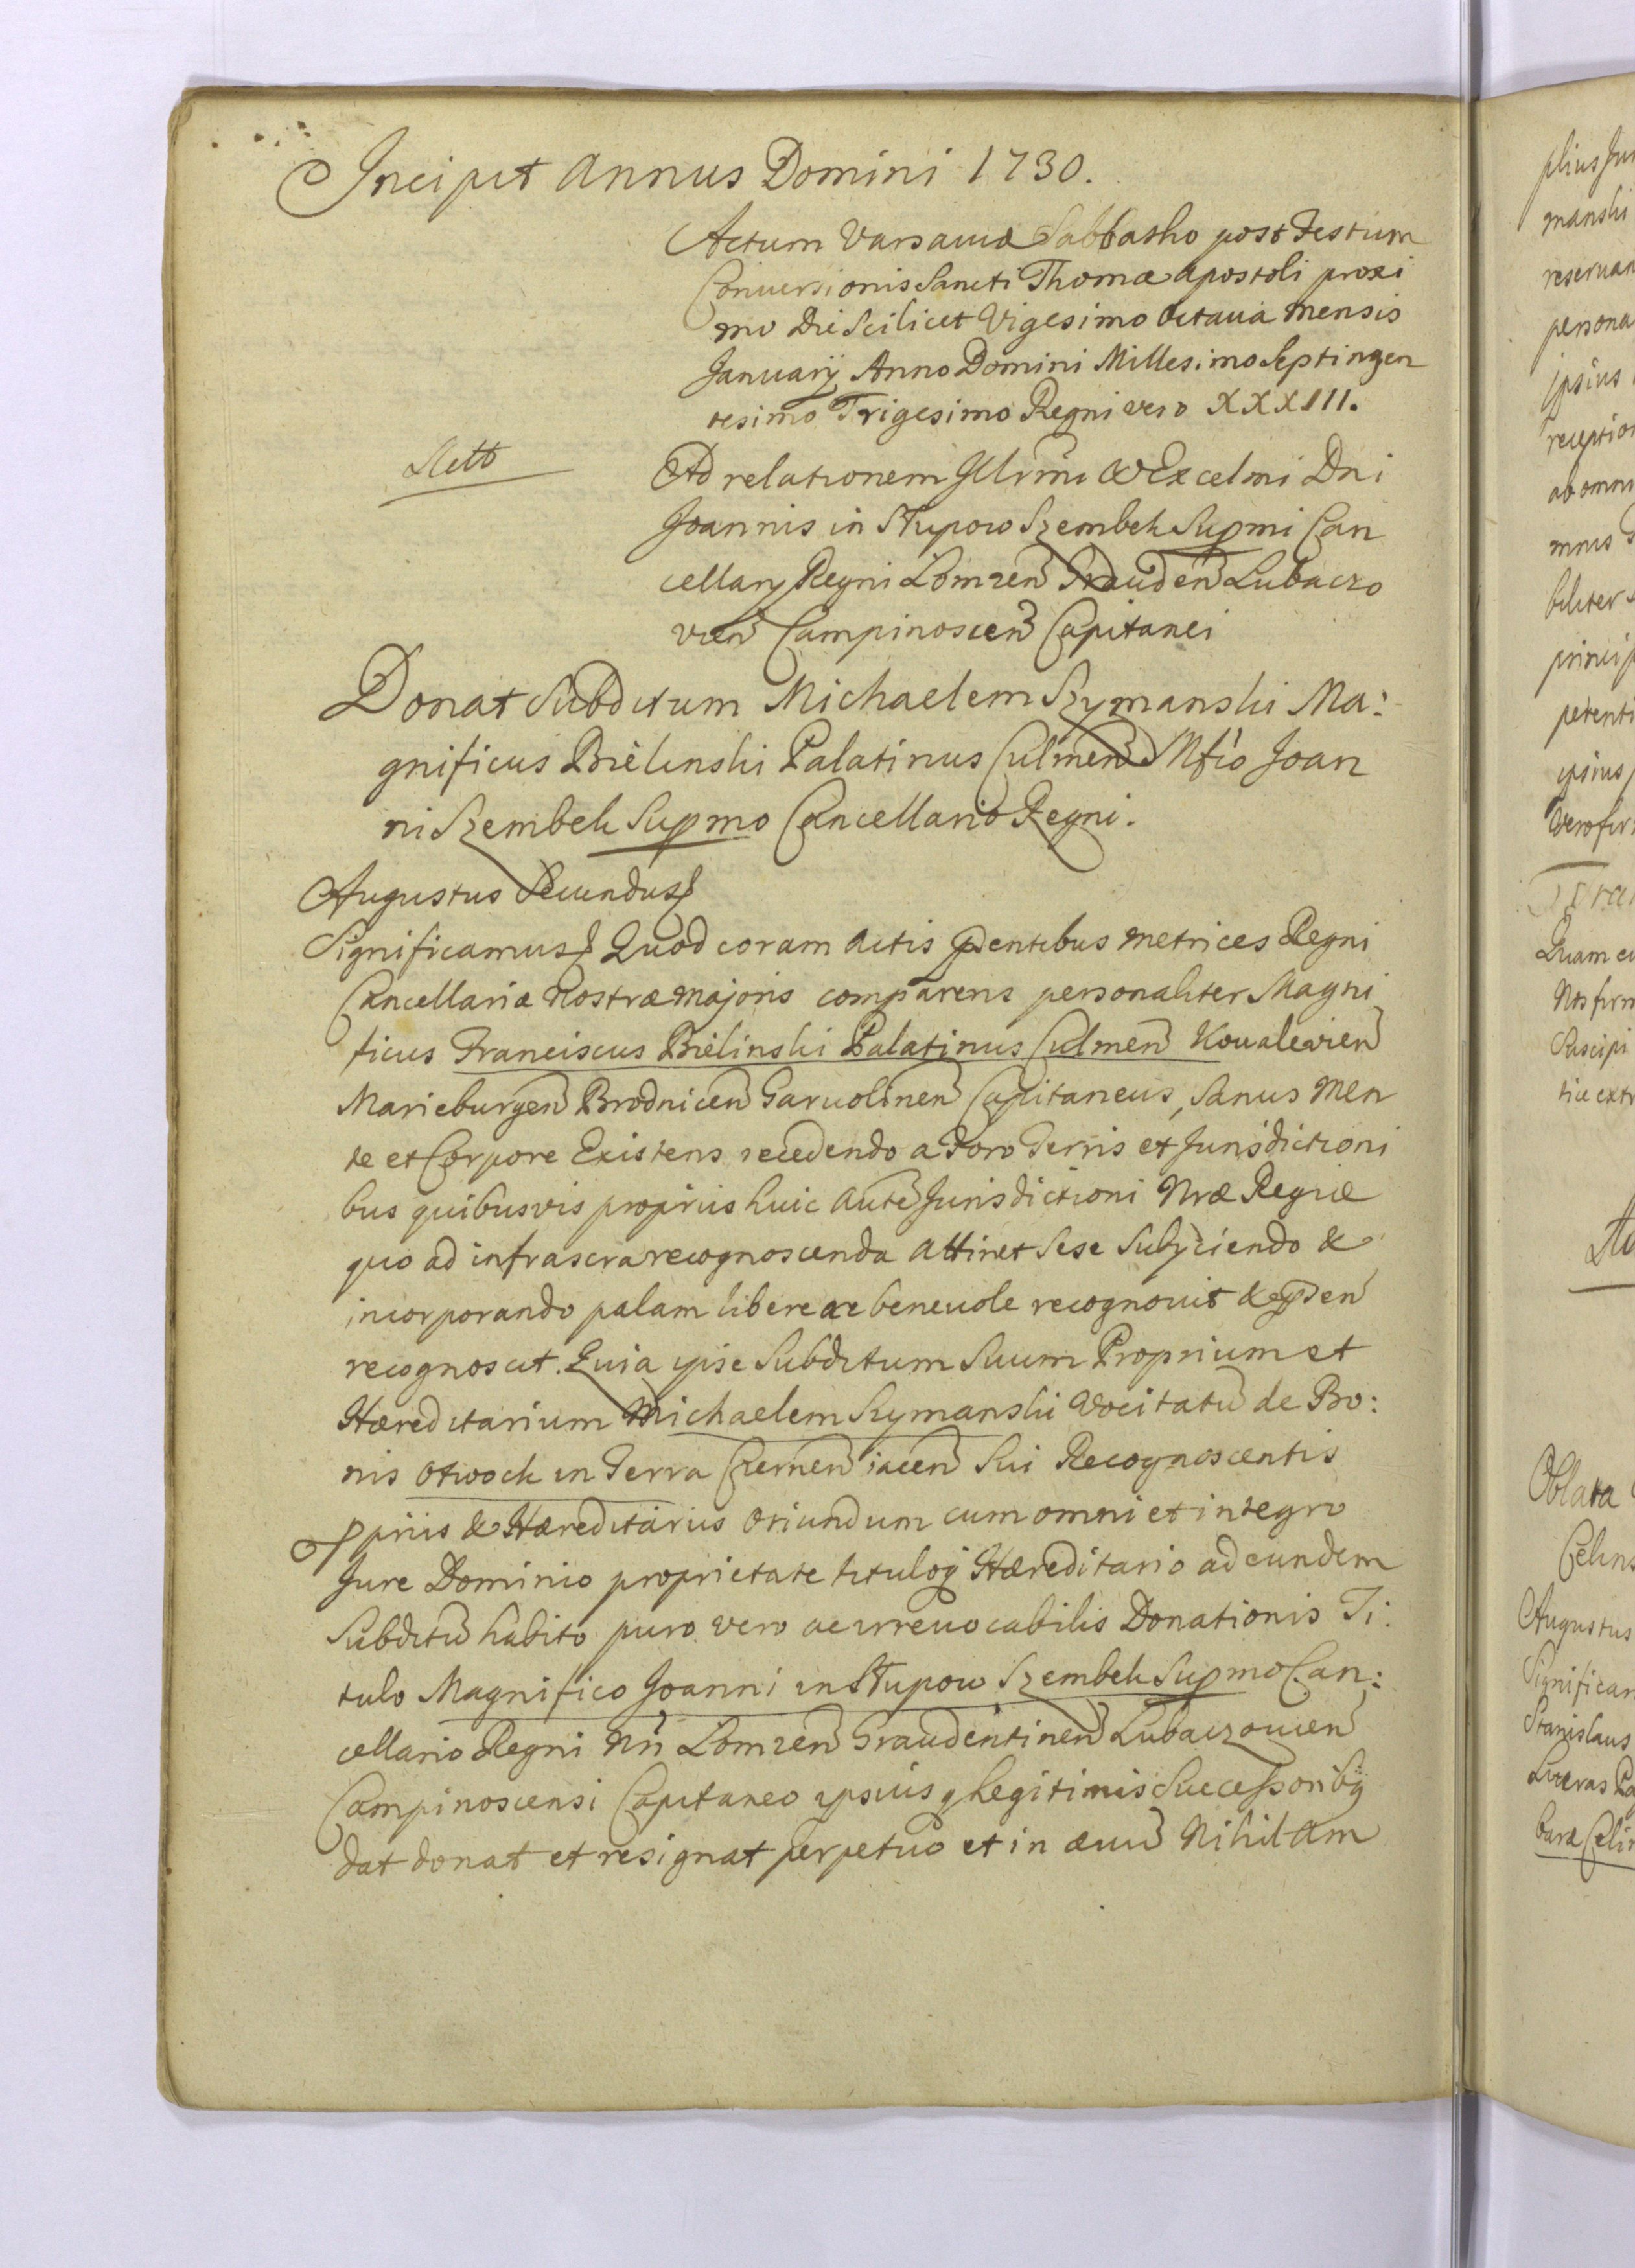 Incipit Annus Domini 1730.
Actum Varsaviæ Sabbatho post Festum
Conversionis Sancti Thomæ Apostoli proxi
mo Die Scilicet Vigesimo Octava Mensis
Januarij Anno Domini Millesimo Septingen
tesimo Trigesimo Regni vero XXXIII.
Ad relationem Illrmi & Excelmi Dni
Joannis in Słupow Szembek Supmi Can
cellarij Regni Lomzen Grauden Lubaczo
vien Campinoscen Capitanei
Donat Subditum Michaelem Szymanski Ma:
gnificus Bielinski Palatinus Culmen Mfco Joan
ni Szembek Supmo Cancellario Regni.
Augustus Secundus
Significamus Quod coram Actis pntibus Metrices Regni
Cancellariæ Nostræ Majoris comparens personaliter Magni
ficus Franciscus Bielinski Palatinus Culmen Kovalevien
Marieburgen Brodnicen Garvolinen Capitaneus, Sanus Men
te et Corpore Existens recedendo a Foro Terris et Jurisdictioni
bus quibusvis propriis huic aute Jurisdictioni Nræ Regiæ
quo ad infrascra recognoscenda attinet Sese Subjiciendo &
incorporando palam libere ac benevole recognovit &
recognoscit. Quia ipse Subditum Suum Proprium et
Hæreditarium Michaelem Szymanski Vocitatu de Bo:
nis Otwock in Terra Czernen iacen Sui Recognoscentis
ppriis & Hæreditariis oriundum cum omni et integro
Jure Dominio proprietate tituloq Hæreditario ad eundem
Subditu habito puro vero ac irrevocabilis Donationis Ti:
tulo Magnifico Joanni in Słupow Szembek Supmo Can:
cellario Regni Nri Lomzen Graudentinen Lubaczovien
Campinoscensi Capitaneo ipsiusq Legitimis Successoribq
dat donat et resignat perpetuo et in ævu Nihil Am